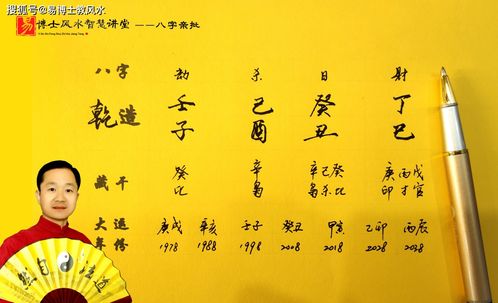 搜狐号@易博士教风水
易 博士风水智慧讲堂 ——八字亲批
Yi Bo Shi Feng Shui Zhi Hui Jiang Tang
八字 劫 杀 日 财
乾造 壬 己 癸 丁
子 酉 丑 巳
藏干 癸 辛 辛己癸 庚丙戊
比 枭 枭杀比 印才官
大运 庚戌 辛亥 壬子 癸丑 甲寅 乙卯 丙辰
年份 1978 1988 1998 2008 2018 2028 2038
然自 道